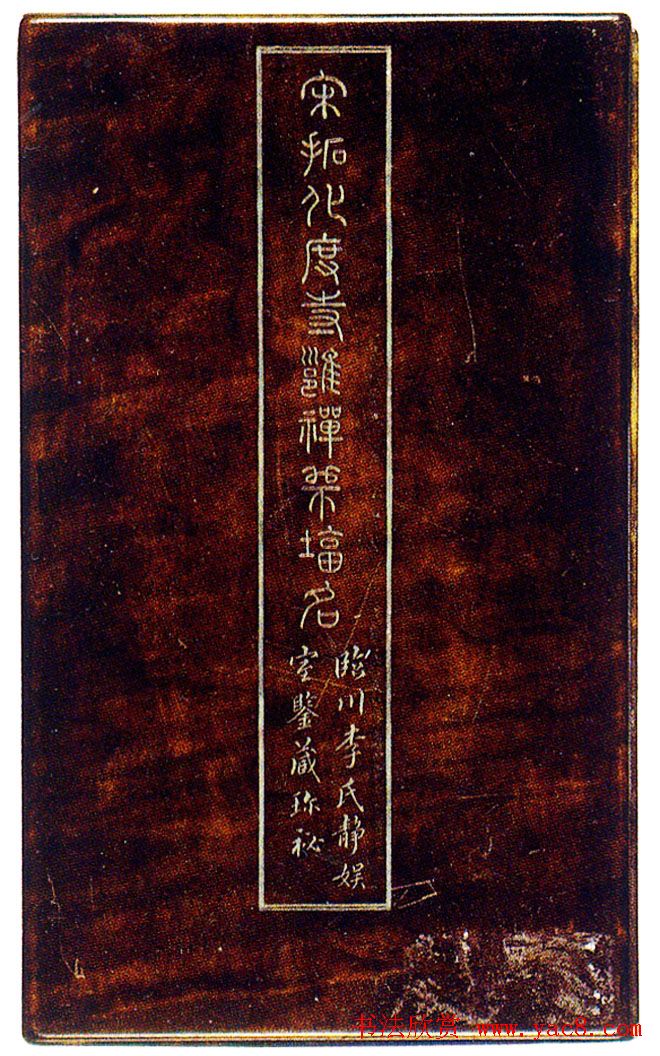 宋拓化度寺邕禪師塔名
臨川李氏靜娛
室鑒藏珎祕
书法欣赏 www.yac8.com